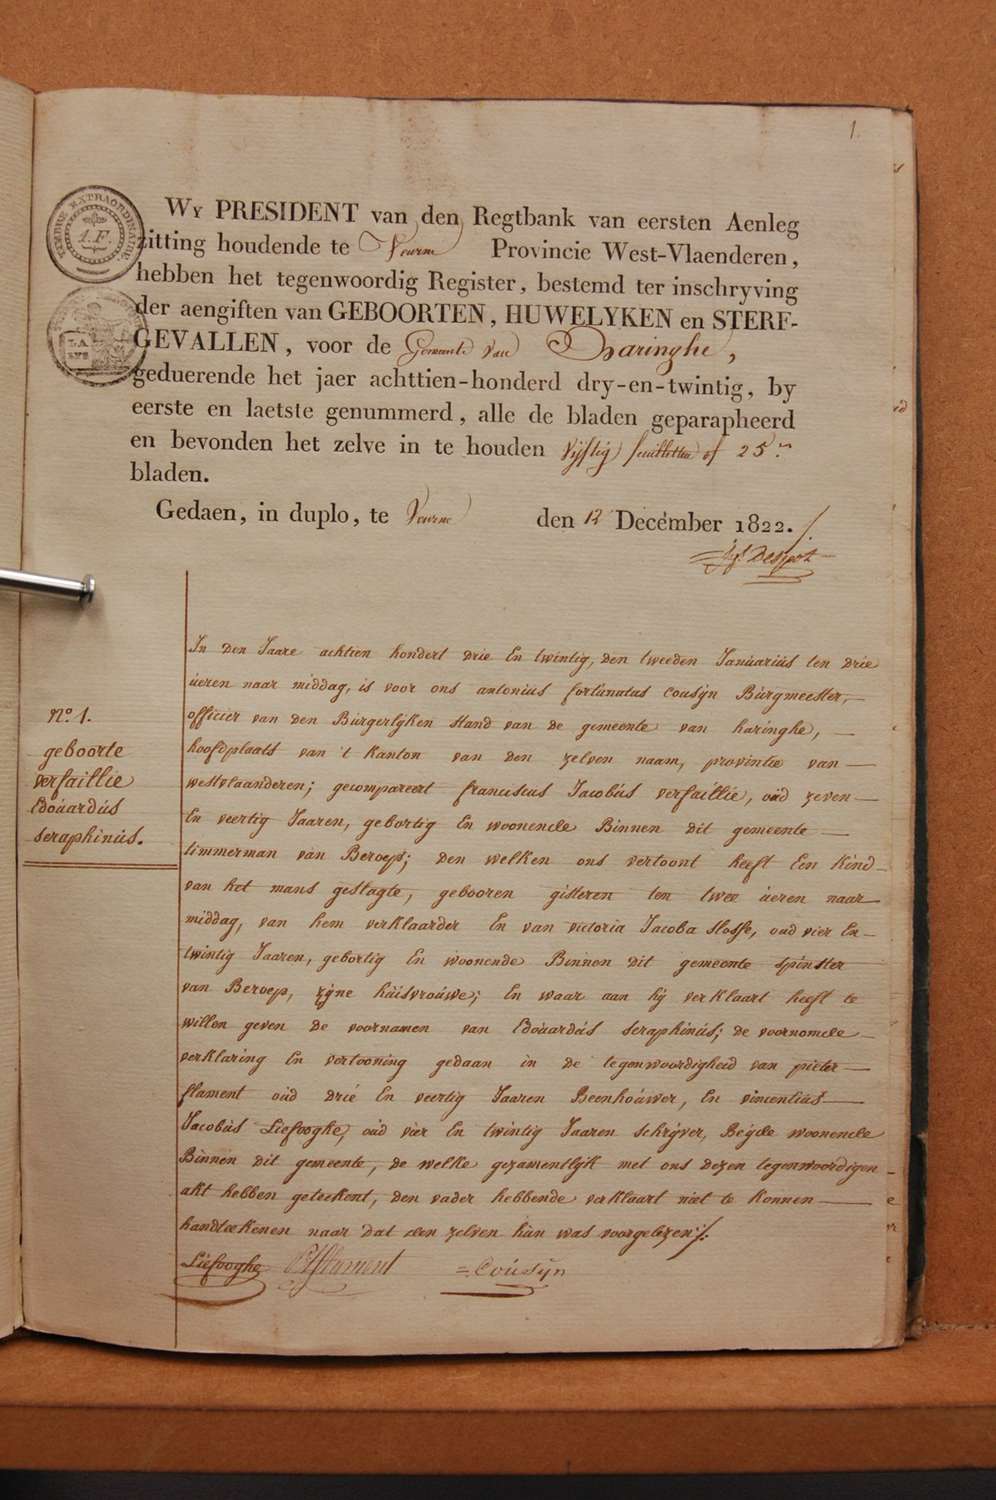 1.
TIMBRE EXTRAORDINAIRE.
A.F.
Wy PRESIDENT van den Regtbank van eersten Aenleg
zitting houdende te Veurne Provincie West-Vlaenderen,
hebben het tegenwoordig Register, bestemd ter inschryving
der aengiften van GEBOORTEN, HUWELYKEN en STERF-
GEVALLEN, voor de Gemeente van Haringhe,
geduerende het jaer achttien-honderd dry-en-twintig, by
eerste en laetste genummerd, alle de bladen geparapheerd
en bevonden het zelve in te houden vijftig feuilletten of 25
bladen.
Gedaen, in duplo, te Veurne den 12 Decémber 1822.
In den Jaare achtien hondert drie En twintig, den tweeden Januariús ten drie
úeren naar middag, is voor ons antonius fortunatus cousÿn Búrgmeester,
officier van den Búrgerlijken stand van de gemeente van haringhe,
hoofdplaats van 't kanton van den zelven naam, provintie van
westvlaanderen; gecompareert franciscus Jacobús verfaillie, oúd zeven
En veertig Jaaren, gebortig En woonende Binnen dit gemeente
timmerman van Beroep; den welken ons vertoont heeft Een kind
van het mans geslagte, gebooren gisteren ten twee úeren naar
middag, van hem verklaarder En van victoria Jacoba slosse, oud vier En
twintig Jaaren, gebortig En woonende Binnen dit gemeente spinster
van Beroep, zÿne húisvroúwe; En waar aan hÿ verklaart heeft te
willen geven de voornamen van Edoúardús seraphinús; de voornomde
verklaring En vertooning gedaan in de tegenwoordigheid van pieter
flament oúd drié En veertig Jaaren Beenhoúwer, En vincentiús
Jacobús Liefooghe, oúd vier En twintig Jaaren schrijver, Béÿde woonende
Binnen dit gemeente, de welke gezamentlijk met ons dezen tegenwoordigen
akt hebben geteekent, den vader hebbende verklaart niet te konnen
handteekenen naar dat den zelven hún was voorgelezen;/.
Liefooghe P Flament = Coúsÿn
n.º 1.
geboorte
verfaillie
Edoúardús
seraphinús.